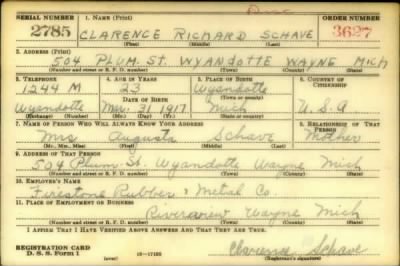 SERIAL NUMBER 1. Name (Print) ORDER NUMBER
2785 CLARENCE RICHARD SCHAVE 3627
(First) (Middle) (Last)
2. Address (Print)
504 PLUM. ST. WYANDOTTE WAYNE MICH
(Number and street or R. F. D. number) (Town) (County) (State)
3. Telephone 4. Age in Years 5. Place of Birth 6. Country of Citizenship
1244 M 23 Wyandotte
Date of Birth (Town or county)
Wyandotte Mar. 31 1917 Mich U.S.A
(Exchange) (Number) (Mo.) (Day) (Yr.) (State or country)
7. Name of Person Who Will Always Know Your Address 8. Relationship of That Person
Mrs Augusta Schave Mother
(Mr., Mrs., Miss) (First) (Middle) (Last)
9. Address of That Person
504 Plum St. Wyandotte Wayne Mich
(Number and street or R. F. D. number) (Town) (County) (State)
10. Employer's Name
Firestone Rubber & Metal Co.
11. Place of Employment or Business
Riverview Wayne Mich
(Number and street or R. F. D. number) (Town) (County) (State)
I Affirm That I Have Verified Above Answers and That They Are True.
Registration Card
D. S. S. Form 1 (over) 16—17105 Clarence Schave
(Registrant's signature)